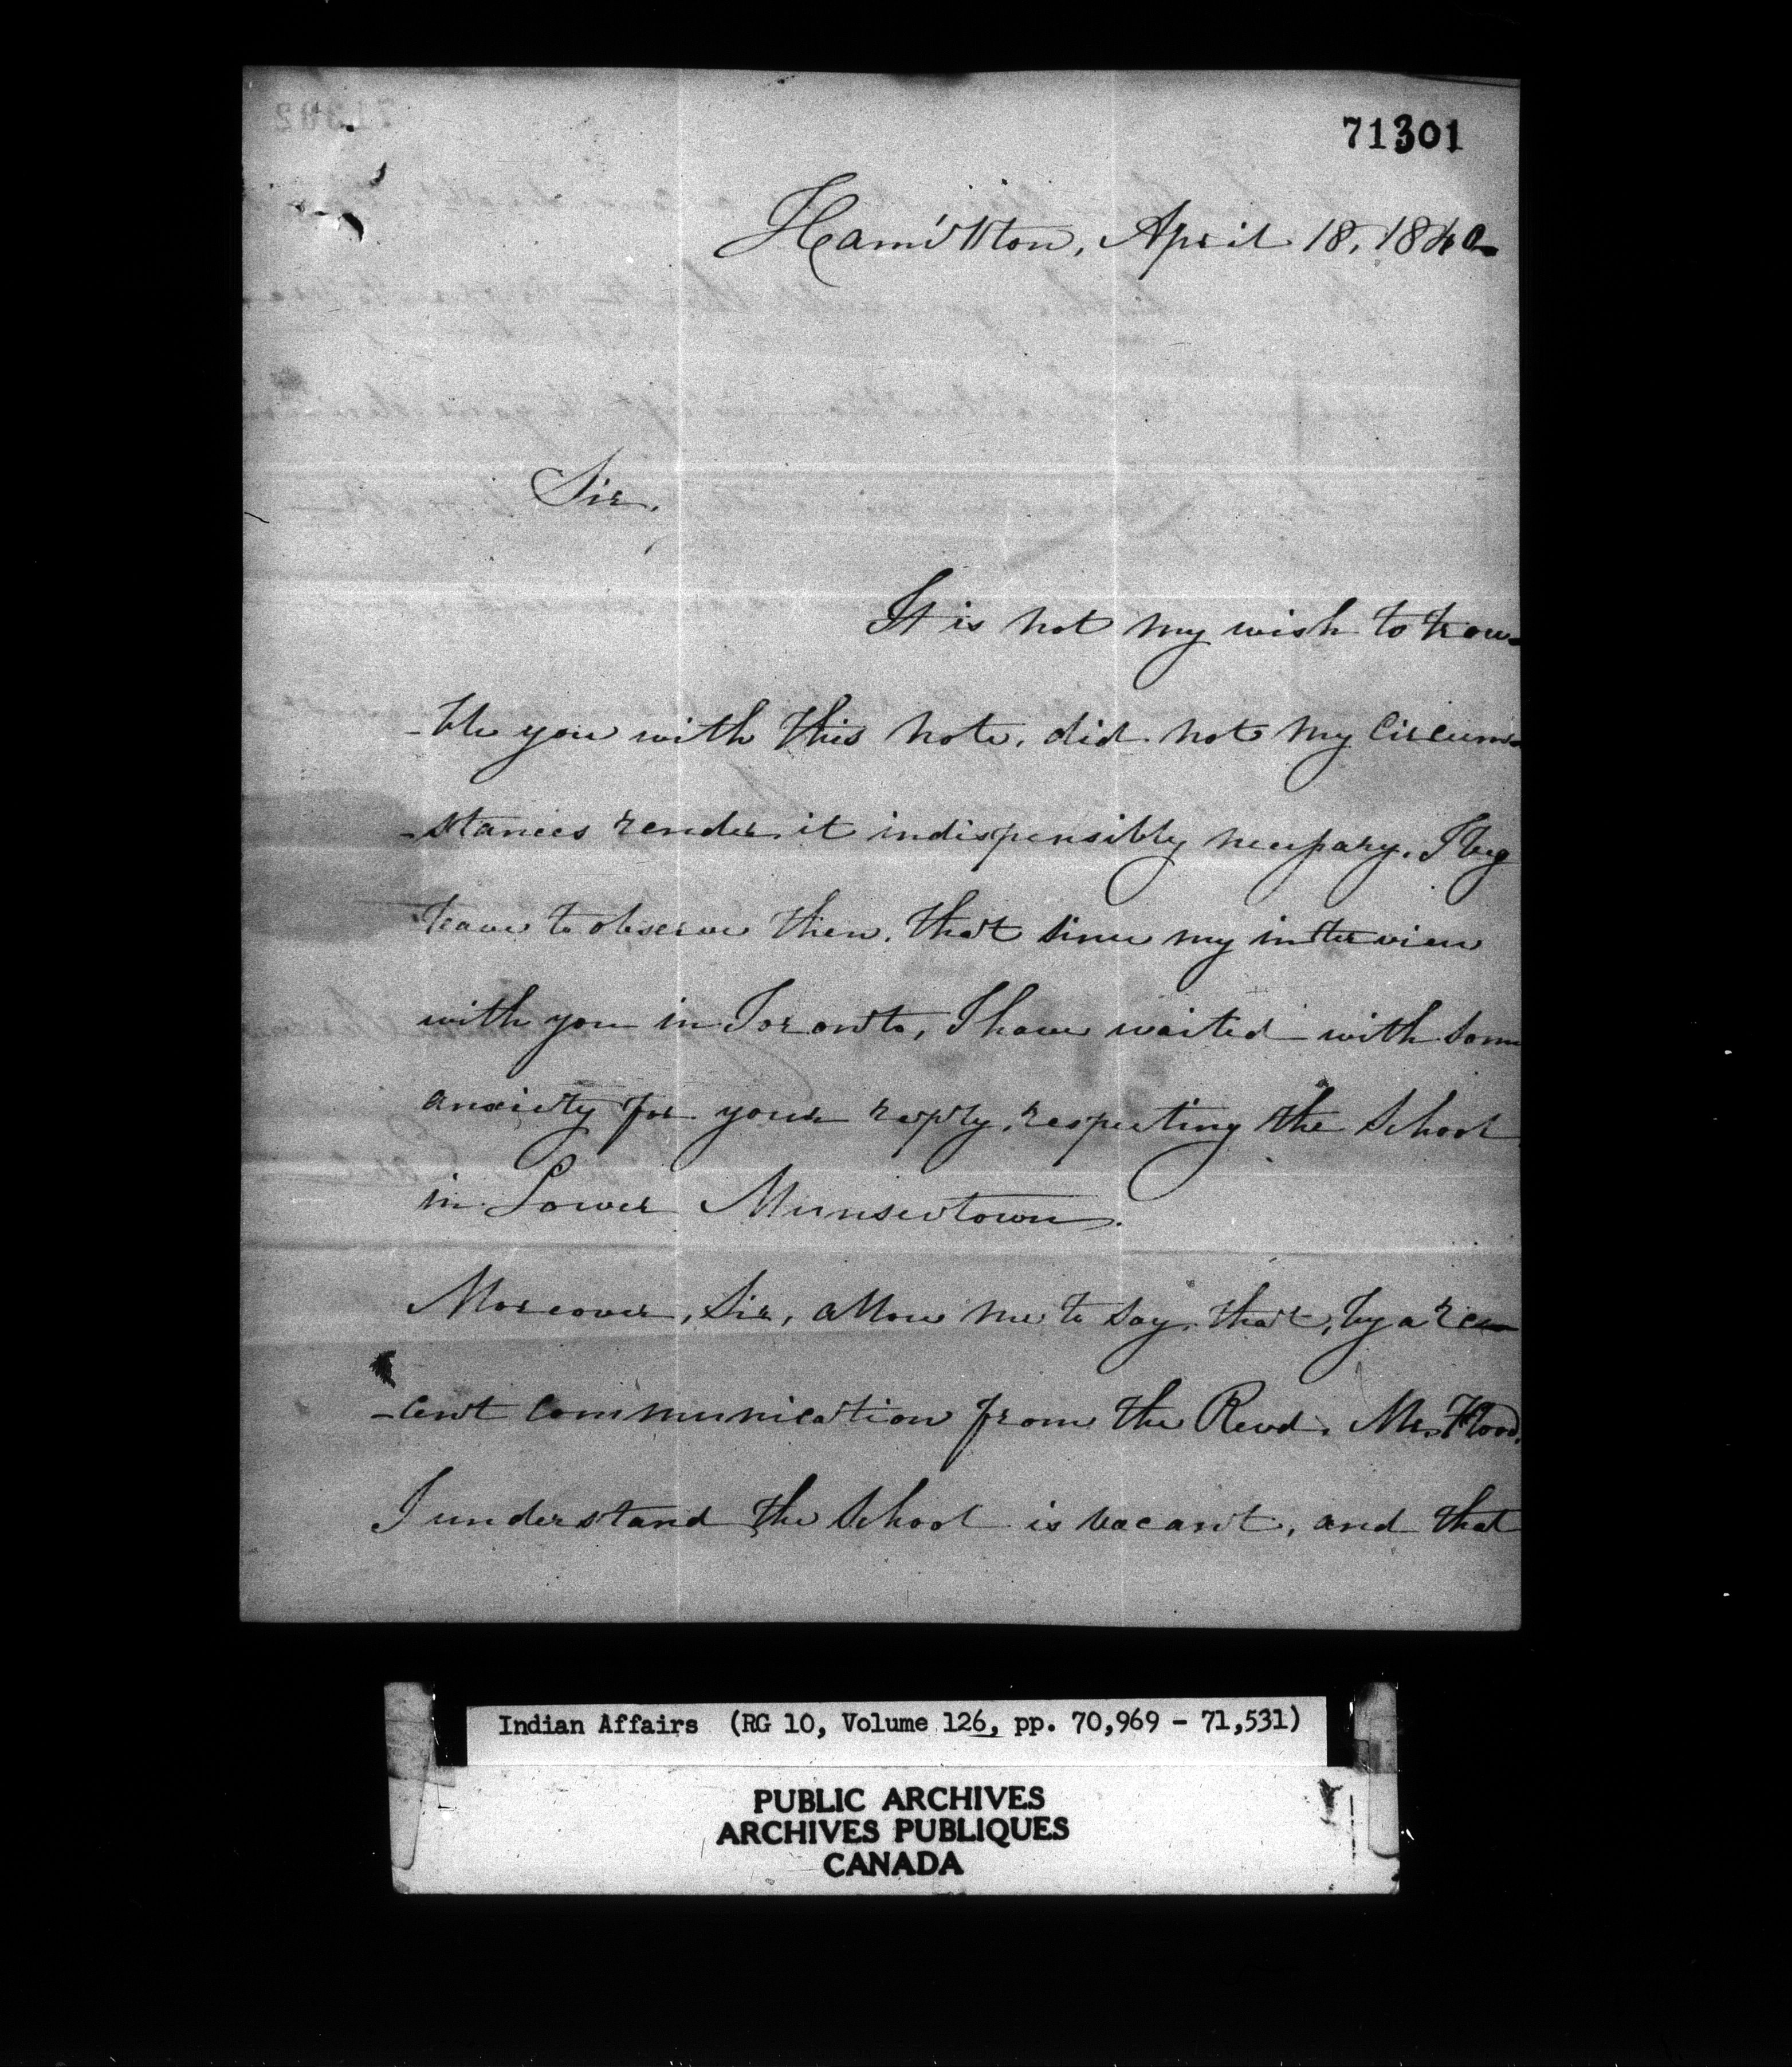 71302
71301
Hamilton, April 18, 1840
Sir,
It is not my wish to trou-
-ble you with this note, did not my Circum-
-stances render it indispensibly necessary. I beg
leave to observe then, that since my interview
with you in Toronto, I have waited with some
anxiety for your reply, respecting the School
in Lower Munseetown.
Moreover, Sir, allow me to say, that, by a re-
-cent communication from the Revd. Mr. Flood,
I understand the School is vacant, and that
Indian Affairs (RG 10, Volume 126, pp. 70,969 - 71,531)
PUBLIC ARCHIVES
ARCHIVES PUBLIQUES
CANADA